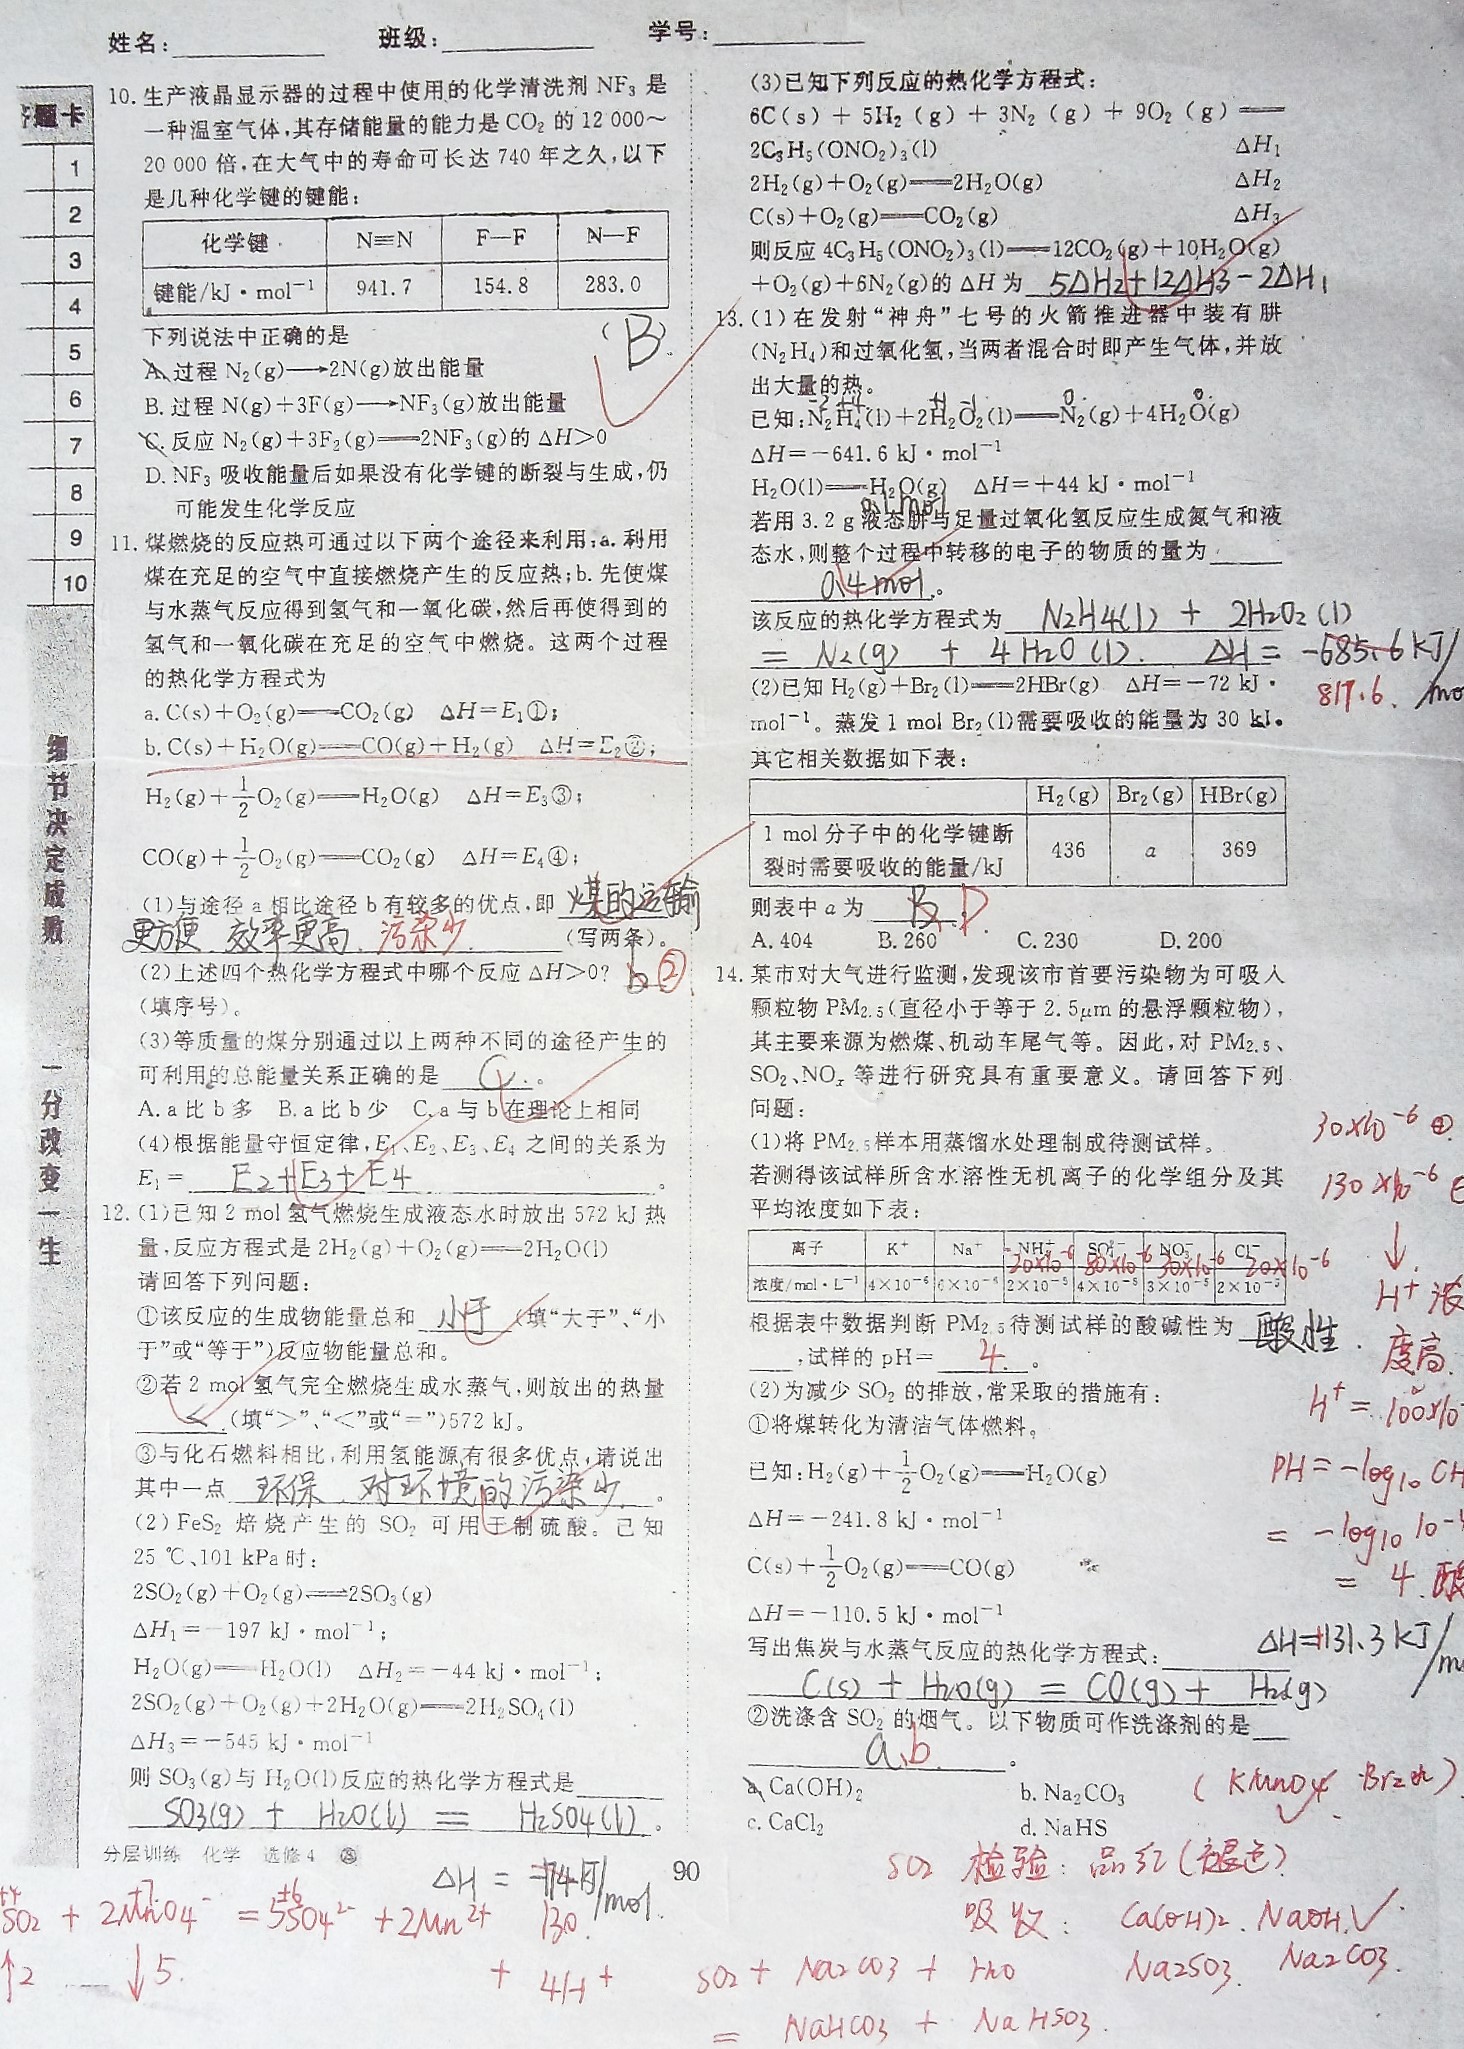 姓名: 班级: 学号:
答题卡
1
2
3
4
5
6
7
8
9
10
细节决定成败 一分改变一生
10. 生产液晶显示器的过程中使用的化学清洗剂 NF₃ 是
一种温室气体,其存储能量的能力是 CO₂ 的 12 000~
20 000 倍,在大气中的寿命可长达 740 年之久,以下
是几种化学键的键能:
化学键 N≡N F—F N—F
键能/kJ·mol⁻¹ 941.7 154.8 283.0
下列说法中正确的是 (B)
A. 过程 N₂(g)⟶2N(g)放出能量
B. 过程 N(g)+3F(g)⟶NF₃(g)放出能量
C. 反应 N₂(g)+3F₂(g)══2NF₃(g)的 ΔH>0
D. NF₃ 吸收能量后如果没有化学键的断裂与生成,仍
可能发生化学反应
11. 煤燃烧的反应热可通过以下两个途径来利用:a. 利用
煤在充足的空气中直接燃烧产生的反应热;b. 先使煤
与水蒸气反应得到氢气和一氧化碳,然后再使得到的
氢气和一氧化碳在充足的空气中燃烧。这两个过程
的热化学方程式为
a. C(s)+O₂(g)══CO₂(g) ΔH=E₁①;
b. C(s)+H₂O(g)══CO(g)+H₂(g) ΔH=E₂②;
H₂(g)+1/2O₂(g)══H₂O(g) ΔH=E₃③;
CO(g)+1/2O₂(g)══CO₂(g) ΔH=E₄④;
(1)与途径 a 相比途径 b 有较多的优点,即 煤的运输
更方便 效率更高 污染少 (写两条)。
(2)上述四个热化学方程式中哪个反应 ΔH>0? b ②
(填序号)。
(3)等质量的煤分别通过以上两种不同的途径产生的
可利用的总能量关系正确的是 C 。
A. a 比 b 多 B. a 比 b 少 C. a 与 b 在理论上相同
(4)根据能量守恒定律,E₁、E₂、E₃、E₄ 之间的关系为
E₁= E₂+E₃+E₄ 。
12. (1)已知 2 mol 氢气燃烧生成液态水时放出 572 kJ 热
量,反应方程式是 2H₂(g)+O₂(g)══2H₂O(l)
请回答下列问题:
①该反应的生成物能量总和 小于 (填“大于”、“小
于”或“等于”)反应物能量总和。
②若 2 mol 氢气完全燃烧生成水蒸气,则放出的热量
< (填“>”、“<”或“=”)572 kJ。
③与化石燃料相比,利用氢能源有很多优点,请说出
其中一点 环保 对环境的污染少 。
(2) FeS₂ 焙烧产生的 SO₂ 可用于制硫酸。已知
25 ℃、101 kPa 时:
2SO₂(g)+O₂(g)⇌2SO₃(g)
ΔH₁=-197 kJ·mol⁻¹;
H₂O(g)══H₂O(l) ΔH₂=-44 kJ·mol⁻¹;
2SO₂(g)+O₂(g)+2H₂O(g)══2H₂SO₄(l)
ΔH₃=-545 kJ·mol⁻¹
则 SO₃(g)与 H₂O(l)反应的热化学方程式是
SO₃(g) + H₂O(l) = H₂SO₄(l) 。
分层训练 化学 选修4
ΔH = -174 kJ/mol
130
90
SO₂ + 2MnO₄⁻ = 5SO₄²⁻ + 2Mn²⁺
+4 +7 +6
↑2 ↓5. + 4H⁺
(3)已知下列反应的热化学方程式:
6C(s) + 5H₂(g) + 3N₂(g) + 9O₂(g) ══
2C₃H₅(ONO₂)₃(l) ΔH₁
2H₂(g)+O₂(g)══2H₂O(g) ΔH₂
C(s)+O₂(g)══CO₂(g) ΔH₃
则反应 4C₃H₅(ONO₂)₃(l)══12CO₂(g)+10H₂O(g)
+O₂(g)+6N₂(g)的 ΔH 为 5ΔH₂+12ΔH₃-2ΔH₁
13. (1)在发射“神舟”七号的火箭推进器中装有肼
(N₂H₄)和过氧化氢,当两者混合时即产生气体,并放
出大量的热。
已知:N₂H₄(l)+2H₂O₂(l)══N₂(g)+4H₂O(g)
ΔH=-641.6 kJ·mol⁻¹
H₂O(l)══H₂O(g) ΔH=+44 kJ·mol⁻¹
0.1mol
若用 3.2 g 液态肼与足量过氧化氢反应生成氮气和液
态水,则整个过程中转移的电子的物质的量为
0.4mol 。
该反应的热化学方程式为 N₂H₄(l) + 2H₂O₂(l)
= N₂(g) + 4H₂O(l). ΔH = -685.6 kJ/mo
817.6.
(2)已知 H₂(g)+Br₂(l)══2HBr(g) ΔH=-72 kJ·
mol⁻¹。蒸发 1 mol Br₂(l)需要吸收的能量为 30 kJ。
其它相关数据如下表:
H₂(g) Br₂(g) HBr(g)
1 mol 分子中的化学键断
裂时需要吸收的能量/kJ 436 a 369
则表中 a 为 B D
A. 404 B. 260 C. 230 D. 200
14. 某市对大气进行监测,发现该市首要污染物为可吸入
颗粒物 PM₂.₅(直径小于等于 2.5μm 的悬浮颗粒物),
其主要来源为燃煤、机动车尾气等。因此,对 PM₂.₅、
SO₂、NOₓ 等进行研究具有重要意义。请回答下列
问题:
(1)将 PM₂.₅样本用蒸馏水处理制成待测试样。
若测得该试样所含水溶性无机离子的化学组分及其
平均浓度如下表:
离子 K⁺ Na⁺ NH₄⁺ SO₄²⁻ NO₃⁻ Cl⁻
20×10⁻⁶ 80×10⁻⁶ 30×10⁻⁶ 20×10⁻⁶
浓度/mol·L⁻¹ 4×10⁻⁶ 6×10⁻⁶ 2×10⁻⁵ 4×10⁻⁵ 3×10⁻⁵ 2×10⁻⁵
根据表中数据判断 PM₂.₅待测试样的酸碱性为 酸性
,试样的 pH= 4 。
30×10⁻⁶ ⊕
130×10⁻⁶
↓
H⁺浓
度高.
H⁺ = 100×10
PH = -log₁₀ CH
= -log₁₀ 10⁻
= 4. 酸
(2)为减少 SO₂ 的排放,常采取的措施有:
①将煤转化为清洁气体燃料。
已知:H₂(g)+1/2O₂(g)══H₂O(g)
ΔH=-241.8 kJ·mol⁻¹
C(s)+1/2O₂(g)══CO(g)
ΔH=-110.5 kJ·mol⁻¹
写出焦炭与水蒸气反应的热化学方程式: ΔH=+131.3 kJ/m
C(s) + H₂O(g) = CO(g) + H₂(g)
②洗涤含 SO₂ 的烟气。以下物质可作洗涤剂的是
a、b 。
a. Ca(OH)₂ b. Na₂CO₃ (KMnO₄ Br₂水)
c. CaCl₂ d. NaHS
SO₂ 检验: 品红(褪色)
吸收: Ca(OH)₂. NaOH.
Na₂SO₃. Na₂CO₃.
SO₂ + Na₂CO₃ + H₂O
= NaHCO₃ + NaHSO₃.